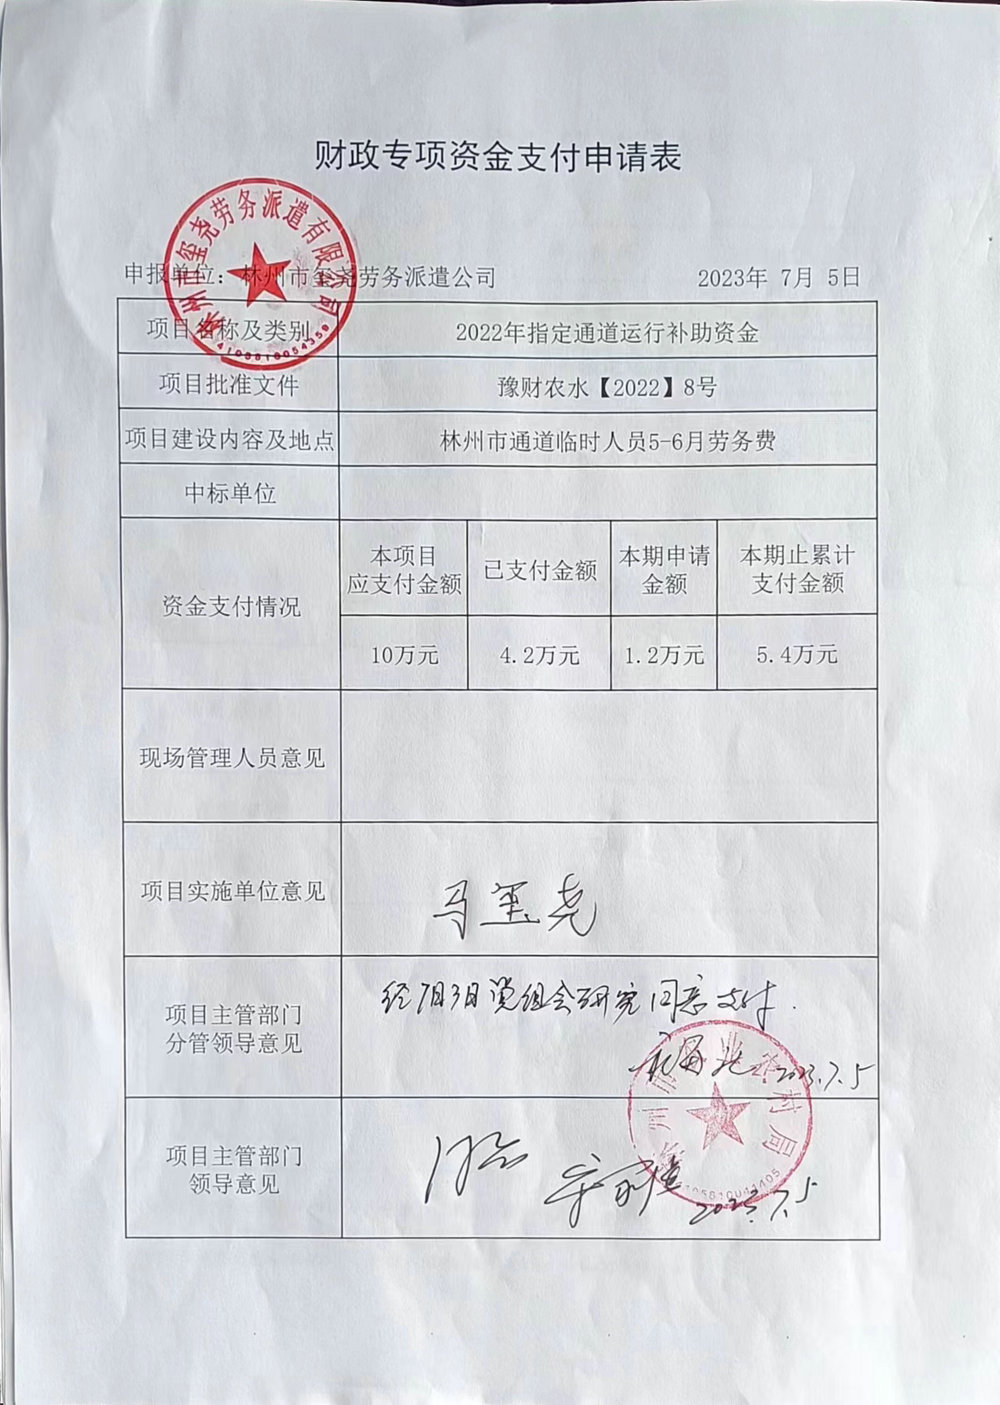 财政专项资金支付申请表
林州市玺尧劳务派遣有限公司
4105810054359
申报单位：林州市玺尧劳务派遣公司 2023年 7月 5日
项目名称及类别 2022年指定通道运行补助资金
项目批准文件 豫财农水【2022】8号
项目建设内容及地点 林州市通道临时人员5-6月劳务费
中标单位
资金支付情况
本项目 已支付金额 本期申请 本期止累计
应支付金额 金额 支付金额
10万元 4.2万元 1.2万元 5.4万元
现场管理人员意见
项目实施单位意见 马玺尧
项目主管部门 经7月3日党组会研究同意支付.
分管领导意见
2023.7.5
州市农业农村局
项目主管部门 同意
领导意见
2023.7.5